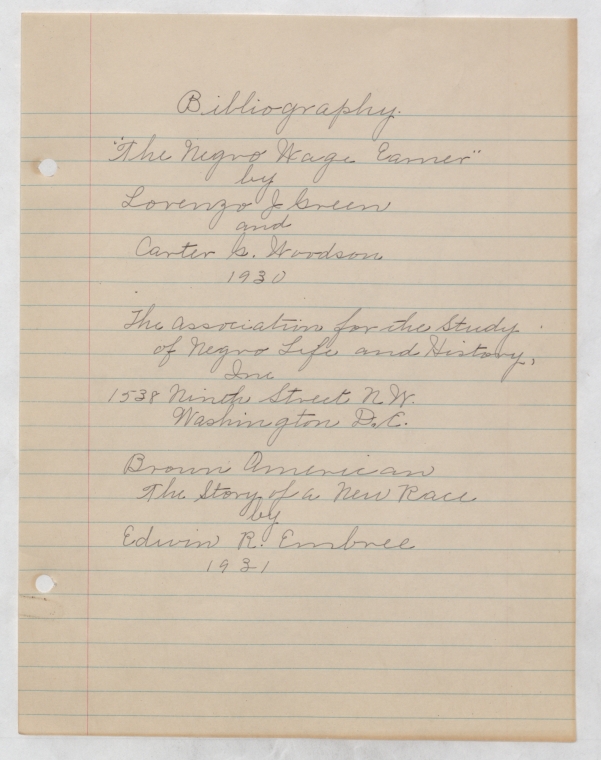 Bibliography.
"The Negro Wage Earner"
by
Lorenzo J Green
and
Carter G. Woodson
1930
The Association for the Study
of Negro Life and History,
Inc
1538 Ninth Street N.W.
Washington D.C.
Brown American
The Story of a New Race
by
Edwin R. Embree
1931